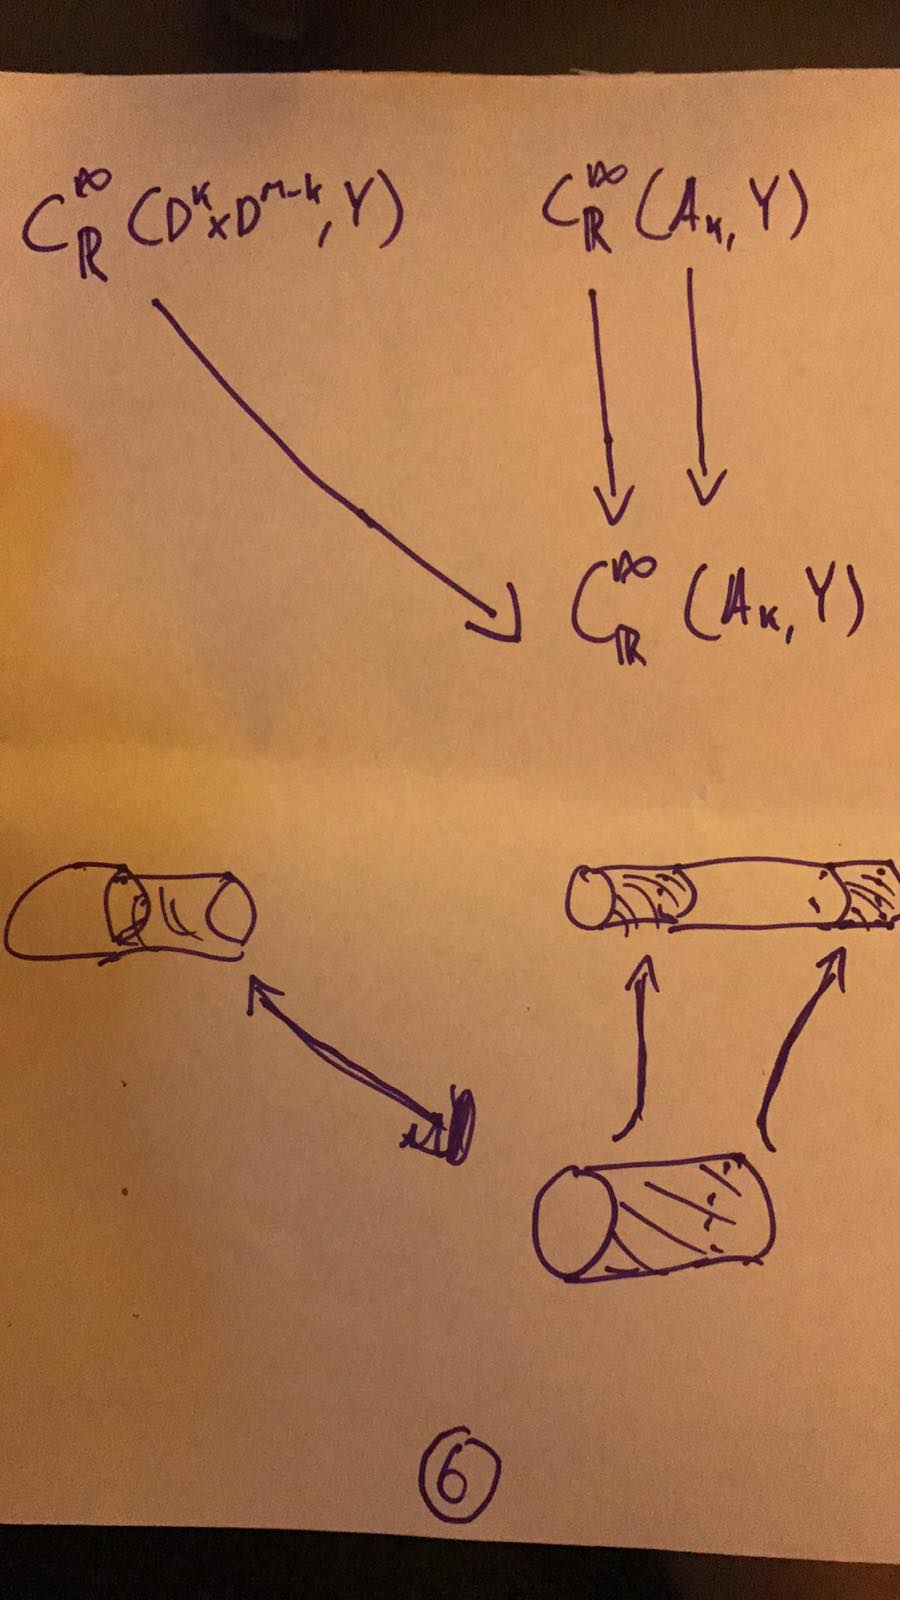 C^∞_ℝ (D^k × D^{n-k}, Y) C^∞_ℝ (A_k, Y)
C^∞_ℝ (A_k, Y)
6